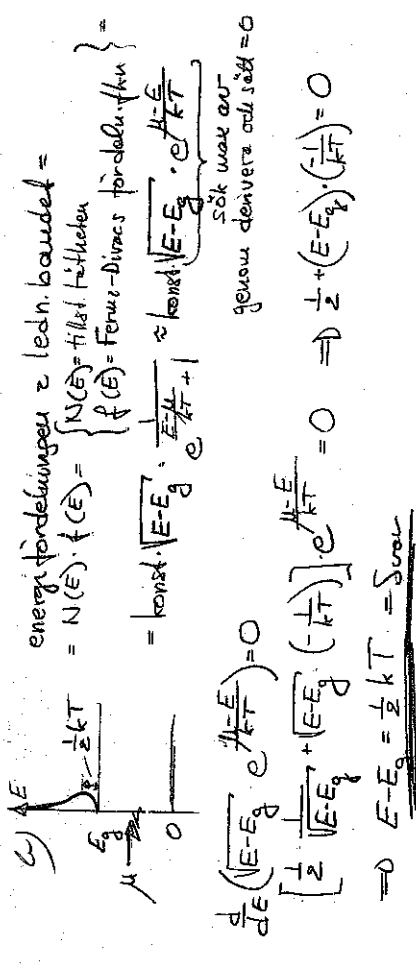 b)
E
E_g
μ
0
~ ½kT
energifördelningen i ledn.bandet =
= N(E)·f(E) = { N(E) = tillst.tätheten
f(E) = Fermi-Diracs fördeln.fkn } =
= konst·√(E-E_g) · 1/(e^((E-μ)/kT) + 1) ≈ konst·√(E-E_g) · e^((μ-E)/kT)
sök max av
genom derivera och sätt = 0
d/dE (√(E-E_g) · e^((μ-E)/kT)) = 0
[½ 1/√(E-E_g) + √(E-E_g) · (-1/kT)] · e^((μ-E)/kT) = 0 ⇒ ½ + (E-E_g)·(-1/kT) = 0
⇒ E-E_g = ½kT = Svar